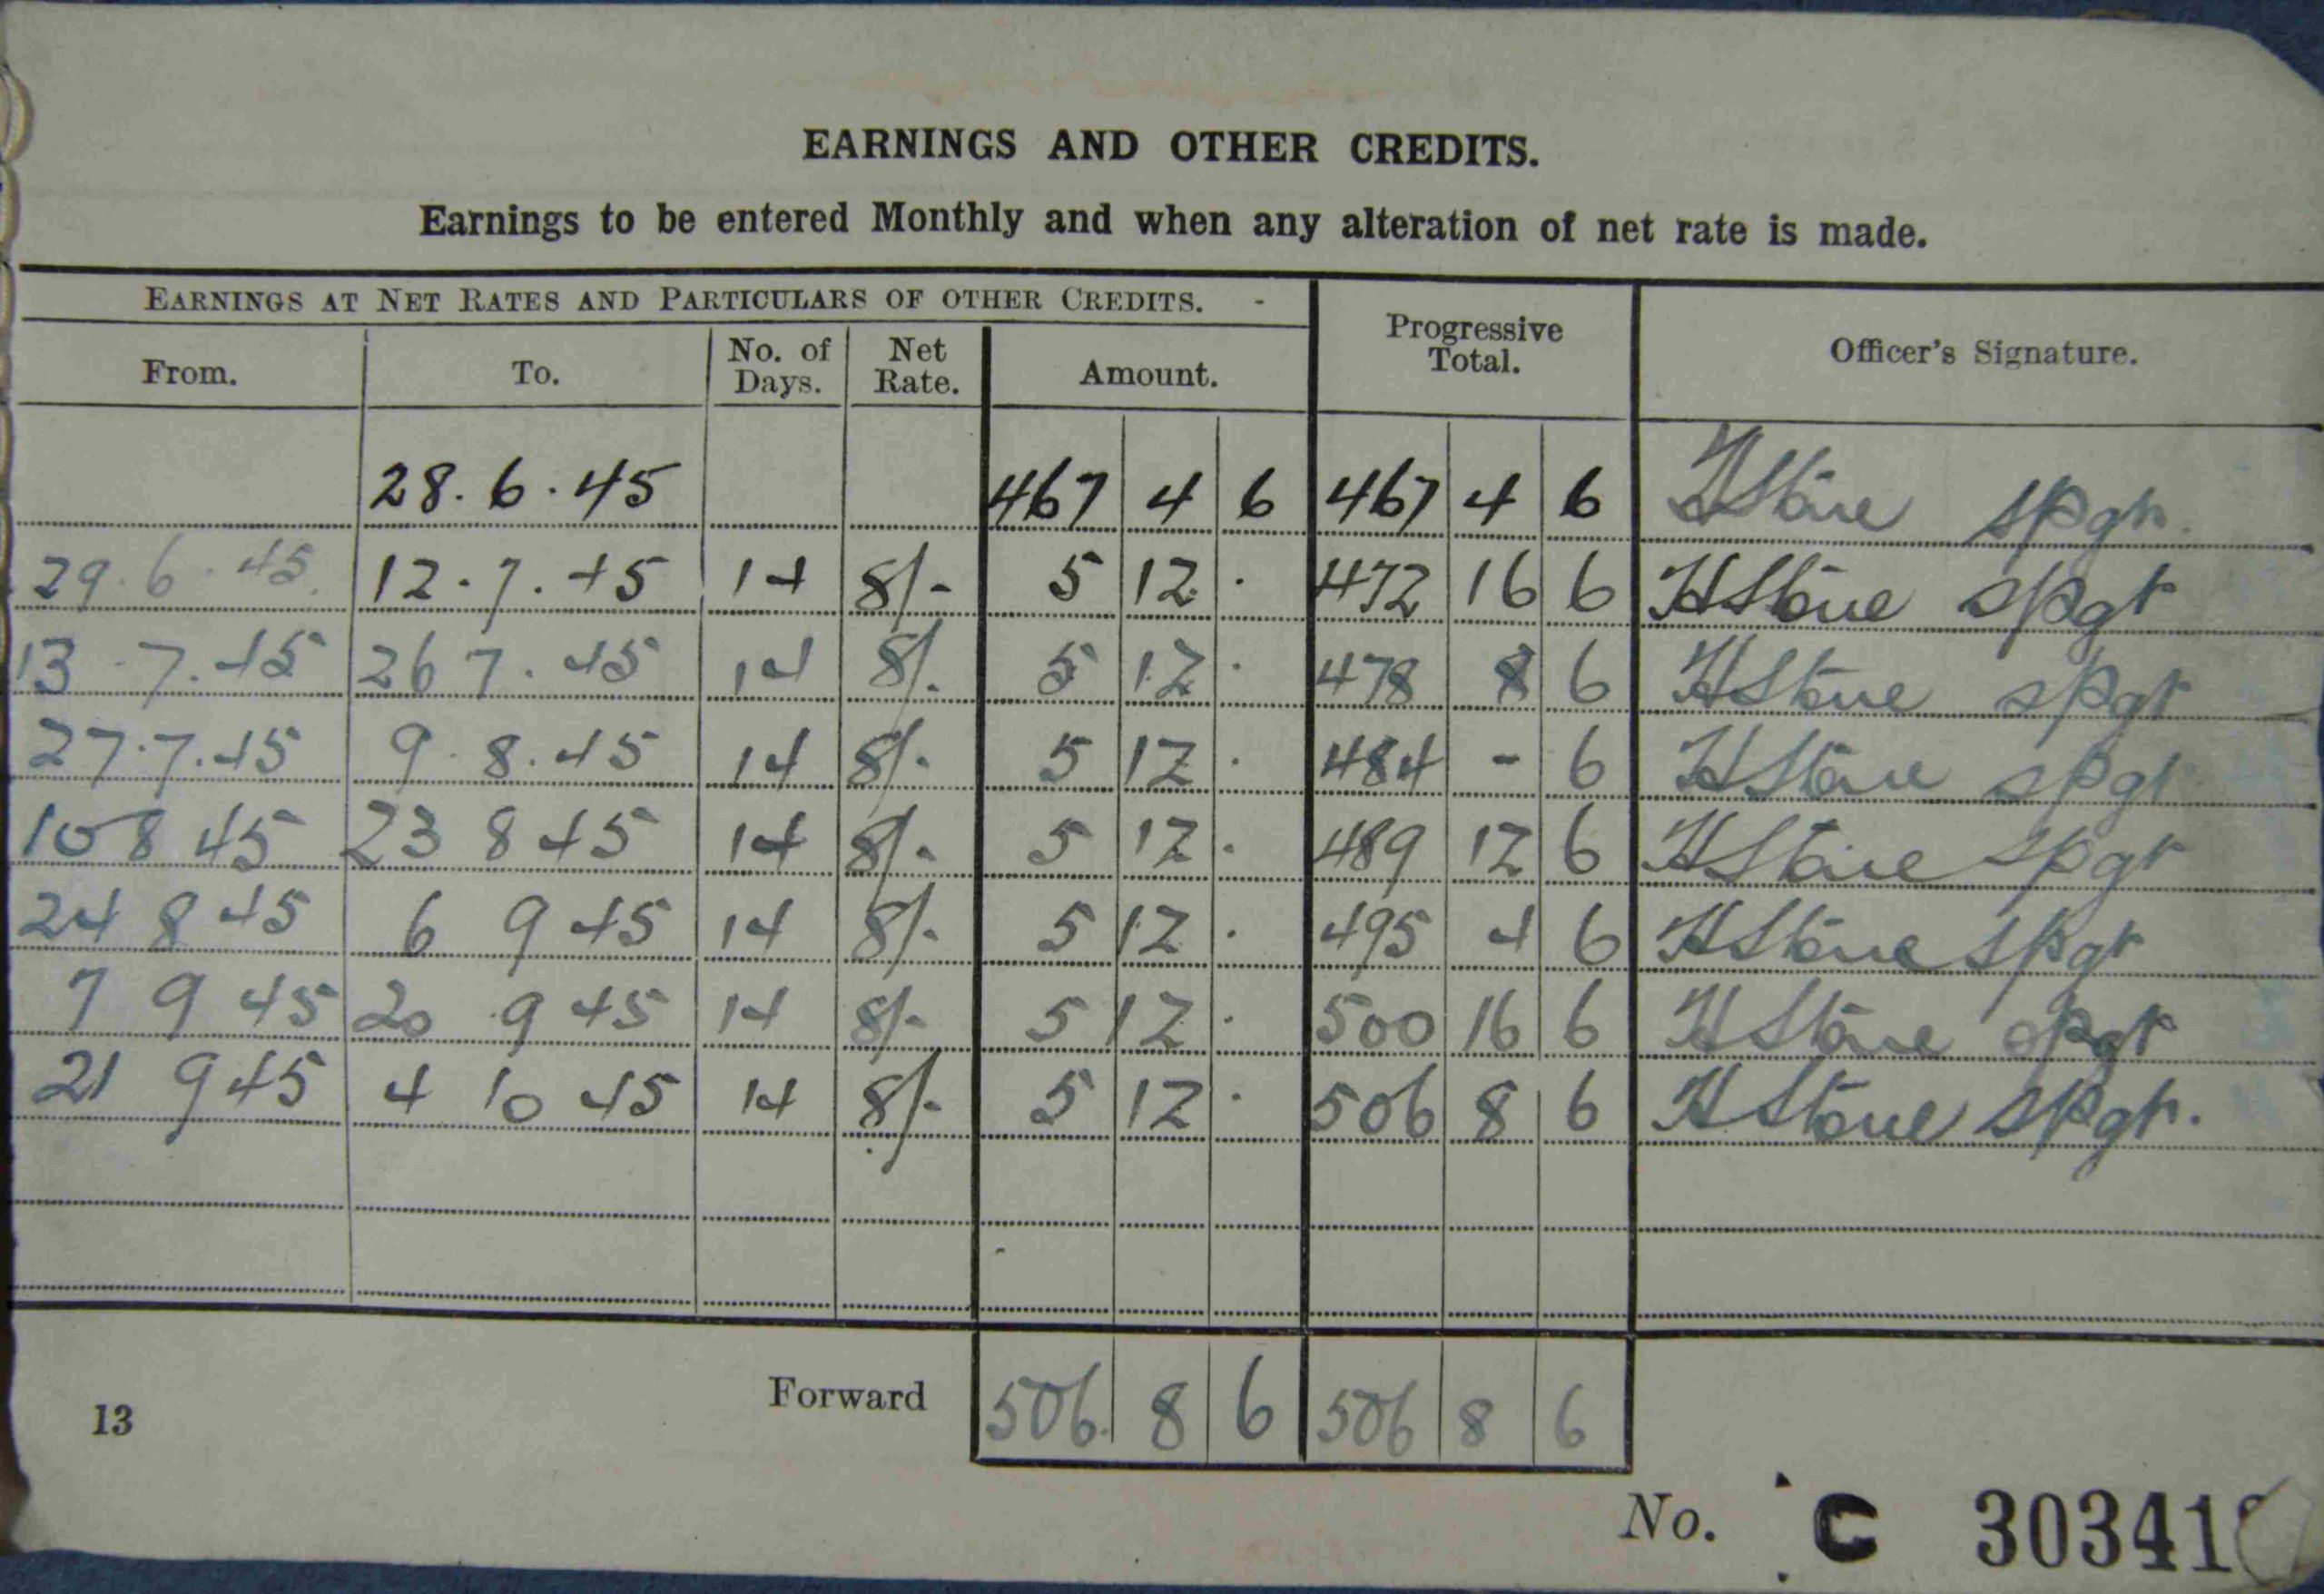 EARNINGS AND OTHER CREDITS.
Earnings to be entered Monthly and when any alteration of net rate is made.
EARNINGS AT NET RATES AND PARTICULARS OF OTHER CREDITS.
Progressive Total.
Officer's Signature.
From. To. No. of Days. Net Rate. Amount.
28.6.45 467 4 6 467 4 6 HStone
29.6.45. 12.7.45 14 8/- 5 12 . 472 16 6 HStone
13.7.45 26 7.45 14 8/- 5 12 . 478 8 6 HStone
27.7.45 9.8.45 14 8/- 5 12 . 484 - 6 HStone
10 8 45 23 8 45 14 8/- 5 12 . 489 12 6 HStone
24 8 45 6 9 45 14 8/- 5 12 . 495 4 6 HStone
7 9 45 20 9 45 14 8/- 5 12 . 500 16 6 HStone
21 9 45 4 10 45 14 8/- 5 12 . 506 8 6 HStone
Forward 506 8 6 506 8 6
13
No. C 30341